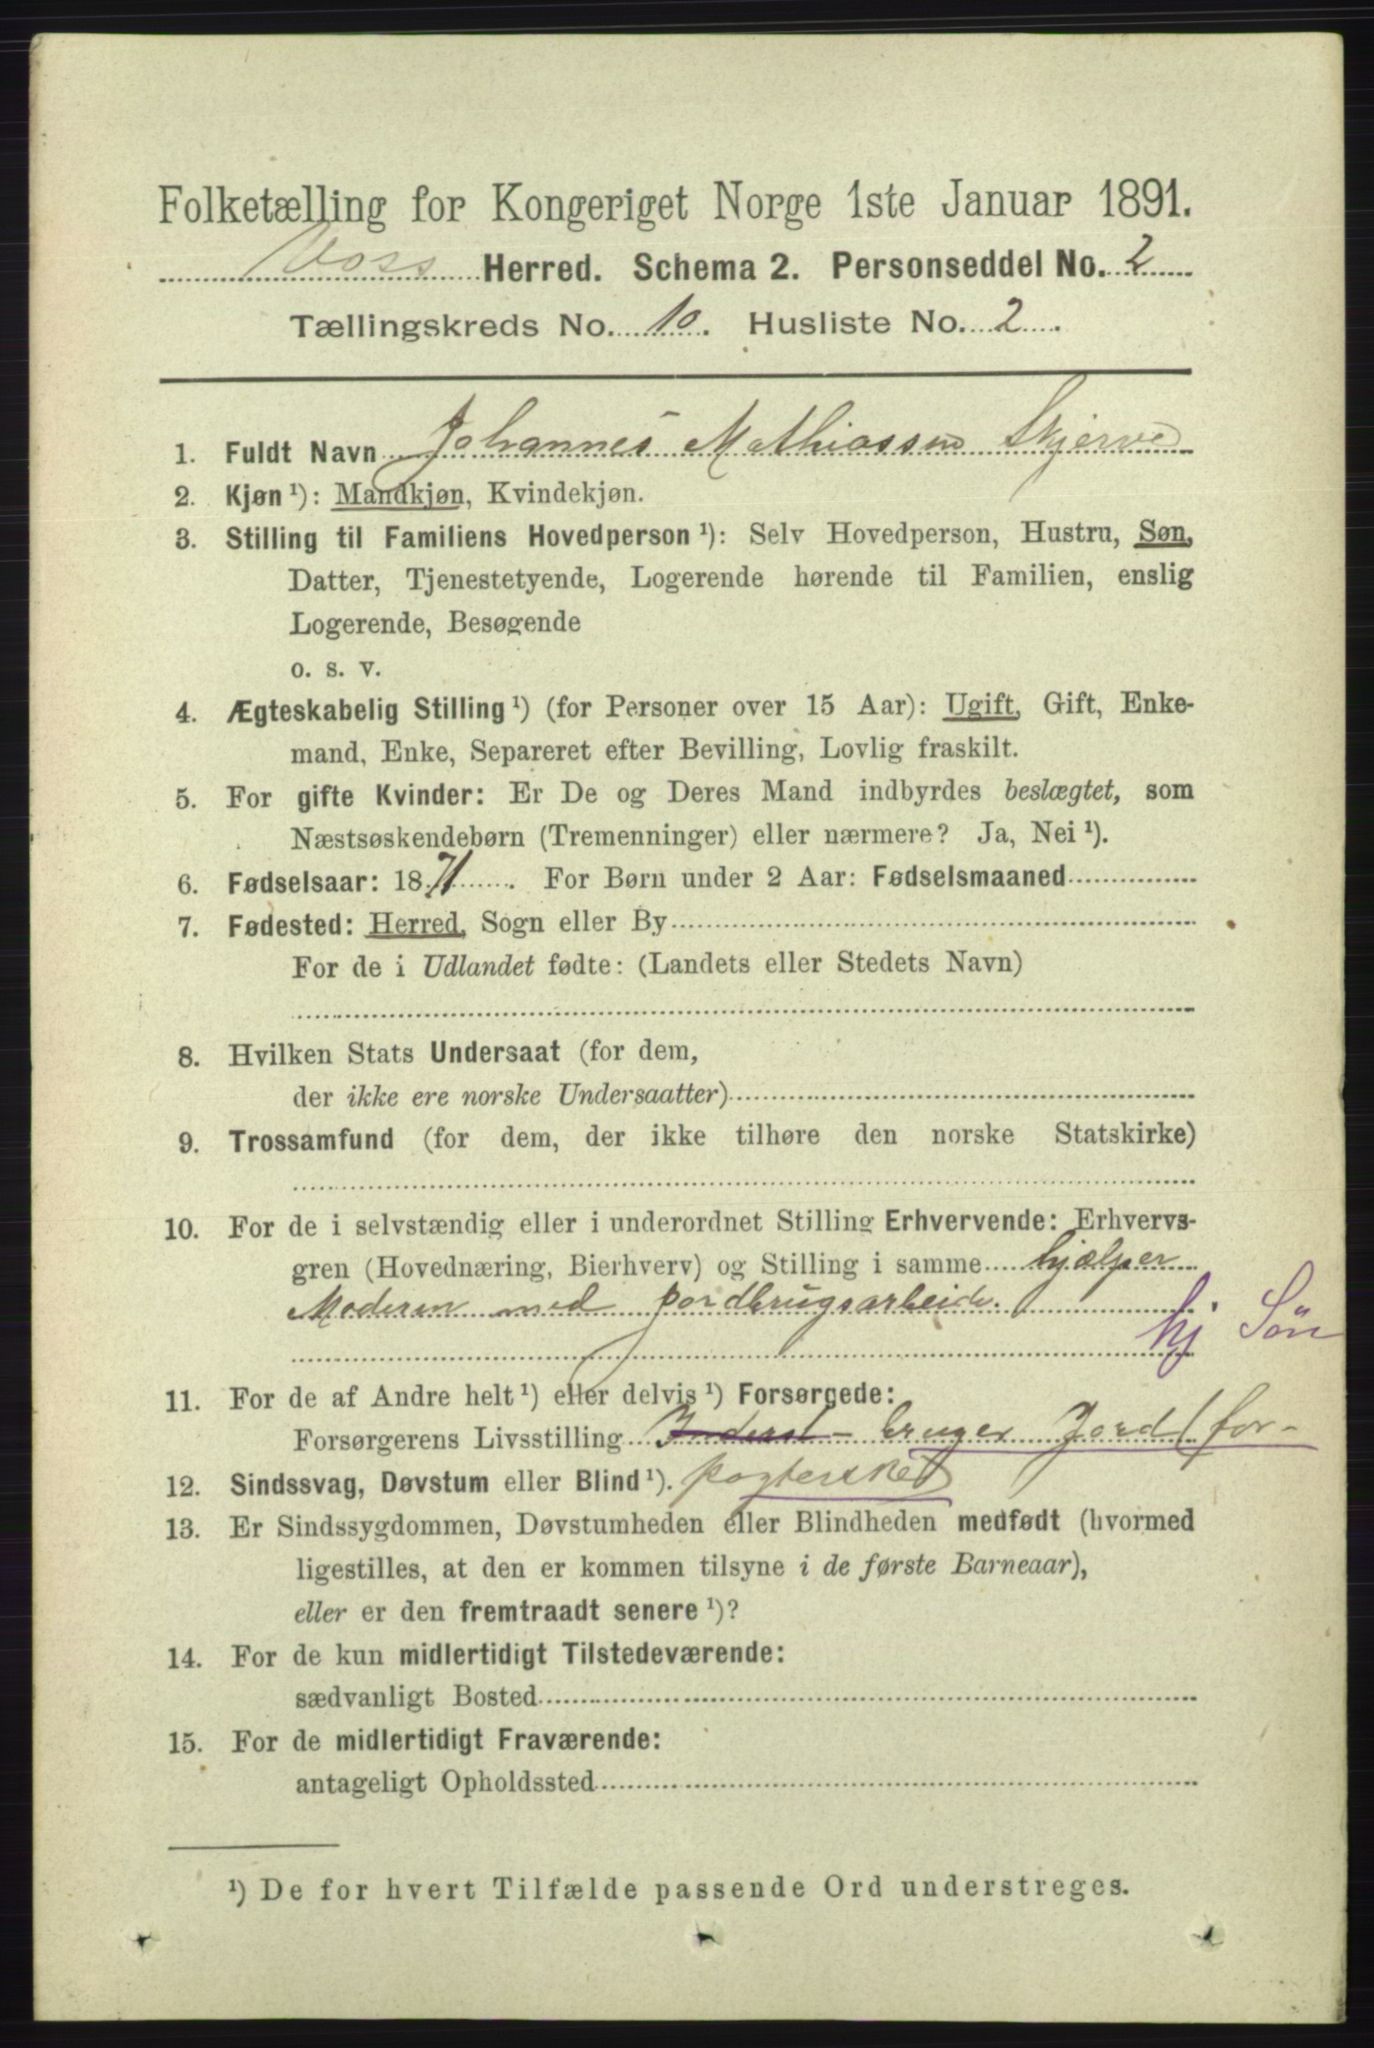 Folketælling for Kongeriget Norge 1ste Januar 1891.
Voss Herred. Schema 2. Personseddel No. 2
Tællingskreds No. 10. Husliste No. 2.
1. Fuldt Navn Johannes Mathiassen Skjerve
2. Kjøn ¹): Mandkjøn, Kvindekjøn.
3. Stilling til Familiens Hovedperson ¹): Selv Hovedperson, Hustru, Søn,
Datter, Tjenestetyende, Logerende hørende til Familien, enslig
Logerende, Besøgende
o. s. v.
4. Ægteskabelig Stilling ¹) (for Personer over 15 Aar): Ugift, Gift, Enke-
mand, Enke, Separeret efter Bevilling, Lovlig fraskilt.
5. For gifte Kvinder: Er De og Deres Mand indbyrdes beslægtet, som
Næstsøskendebørn (Tremenninger) eller nærmere? Ja, Nei ¹).
6. Fødselsaar: 1871. For Børn under 2 Aar: Fødselsmaaned
7. Fødested: Herred, Sogn eller By
For de i Udlandet fødte: (Landets eller Stedets Navn)
8. Hvilken Stats Undersaat (for dem,
der ikke ere norske Undersaatter)
9. Trossamfund (for dem, der ikke tilhøre den norske Statskirke)
10. For de i selvstændig eller i underordnet Stilling Erhvervende: Erhvervs-
gren (Hovednæring, Bierhverv) og Stilling i samme hjælper
Moderen med Jordbrugsarbeide.
hj. Sön
11. For de af Andre helt ¹) eller delvis ¹) Forsørgede:
Forsørgerens Livsstilling Inderst - bruger Jord (for-
12. Sindssvag, Døvstum eller Blind ¹). pagterske)
13. Er Sindssygdommen, Døvstumheden eller Blindheden medfødt (hvormed
ligestilles, at den er kommen tilsyne i de første Barneaar),
eller er den fremtraadt senere ¹)?
14. For de kun midlertidigt Tilstedeværende:
sædvanligt Bosted
15. For de midlertidigt Fraværende:
antageligt Opholdssted
¹) De for hvert Tilfælde passende Ord understreges.